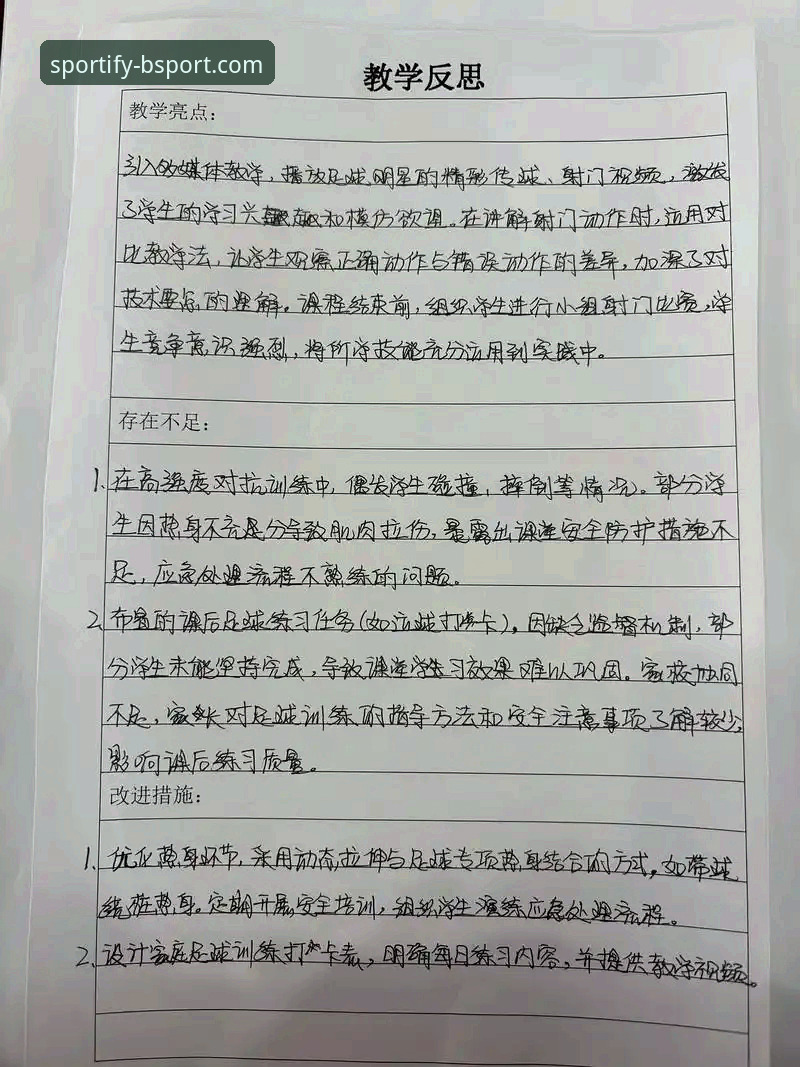 sportify-bsport.com
教学反思
教学亮点：
引入多媒体教学，播放足球明星的精彩传球、射门视频，激发
了学生的学习兴趣和模仿欲望。在讲解射门动作时，运用对
比教学法，让学生观察正确动作与错误动作的差异，加深了对
技术要点的理解。课程结束前，组织学生进行小组射门比赛，学
生竞争意识强烈，将所学技能充分运用到实践中。
存在不足：
1. 在高强度对抗训练中，偶发学生碰撞，摔倒等情况。部分学
生因热身不充足分导致肌肉拉伤，暴露出课堂安全防护措施不
足，应急处理流程不熟练的问题。
2. 布置的课后足球练习任务（如运球打卡），因缺乏监督机制，部
分学生未能坚持完成，导致课堂学习效果难以巩固。家校协同
不足，家长对足球训练的指导方法和安全注意事项了解较少，
影响课后练习质量。
改进措施：
1. 优化热身环节，采用动态拉伸与足球专项热身结合的方式，如带球
绕桩热身。定期开展安全培训，组织学生演练应急处理流程。
2. 设计家庭足球训练打卡表，明确每日练习内容，并提供教学视频。